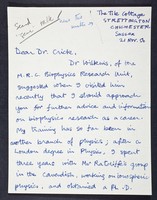 Send
The Tile Cottage
STREETTINGTON
CHICHESTER
Sussex
21 Nov. 50
Dear Dr. Crick,
Dr Wilkins, of the
M.R.C Biophysics Research Unit,
suggested when I visited him
recently that I should approach
you for further advice and information
on biophysics research as a career.
My training has so far been in
another branch of physics; after a
London degree in Physics, I spent
three years with Mr Ratcliffe's group
in the Cavendish, working on ionospheric
physics, and obtained a Ph.D.